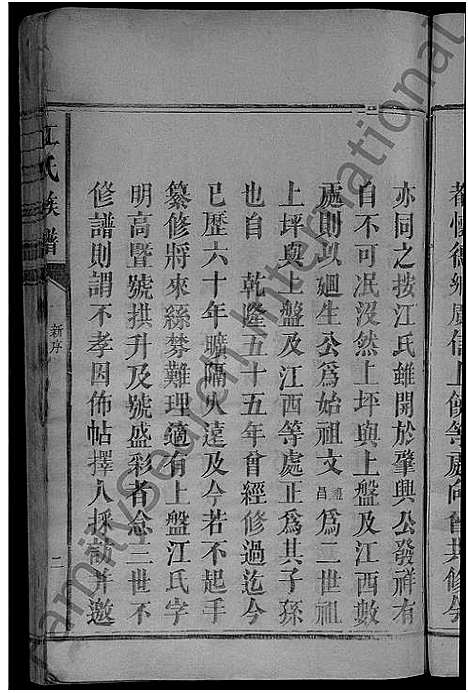 都懷德鄉廣信上饒等處向曾共修今
亦同之按江氏雖開於肇興公發祥有
自不可泯沒然上坪與上盤及江西數
處則以廻生公爲始祖文昌爲二世祖
上坪與上盤及江西等處正爲其子孫
也自 乾隆五十五年曾經修過迄今
已歷六十年曠隔久遠及今若不起手
纂修將來絲棼難理適有上盤江氏字
明高暨號拱升及號盛彩者念三世不
修譜則謂不孝因佈帖擇人採訪并邀
江氏族譜
新序
二
familysearch International